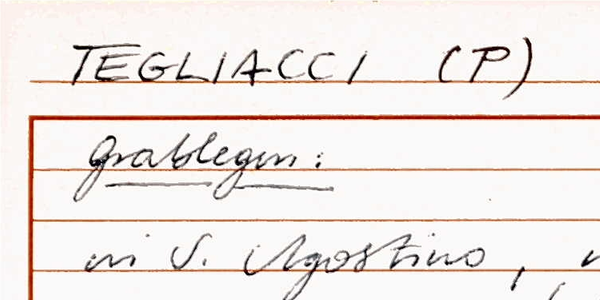 TEGLIACCI (P)
Grablegen:
in S. Agostino,